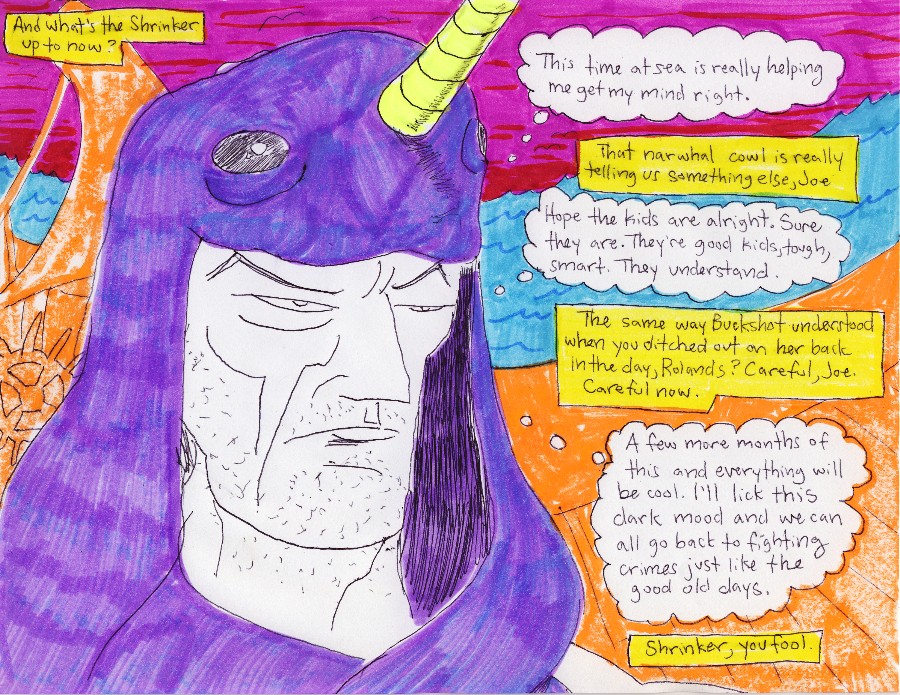 And what's the Shrinker
up to now?
This time at sea is really helping
me get my mind right.
That narwhal cowl is really
telling us something else, Joe
Hope the kids are alright. Sure
they are. They're good kids, tough,
smart. They understand.
The same way Buckshot understood
when you ditched out on her back
in the day, Rolands? Careful, Joe.
Careful now.
A few more months of
this and everything will
be cool. I'll lick this
dark mood and we can
all go back to fighting
crimes just like the
good old days.
Shrinker, you fool.